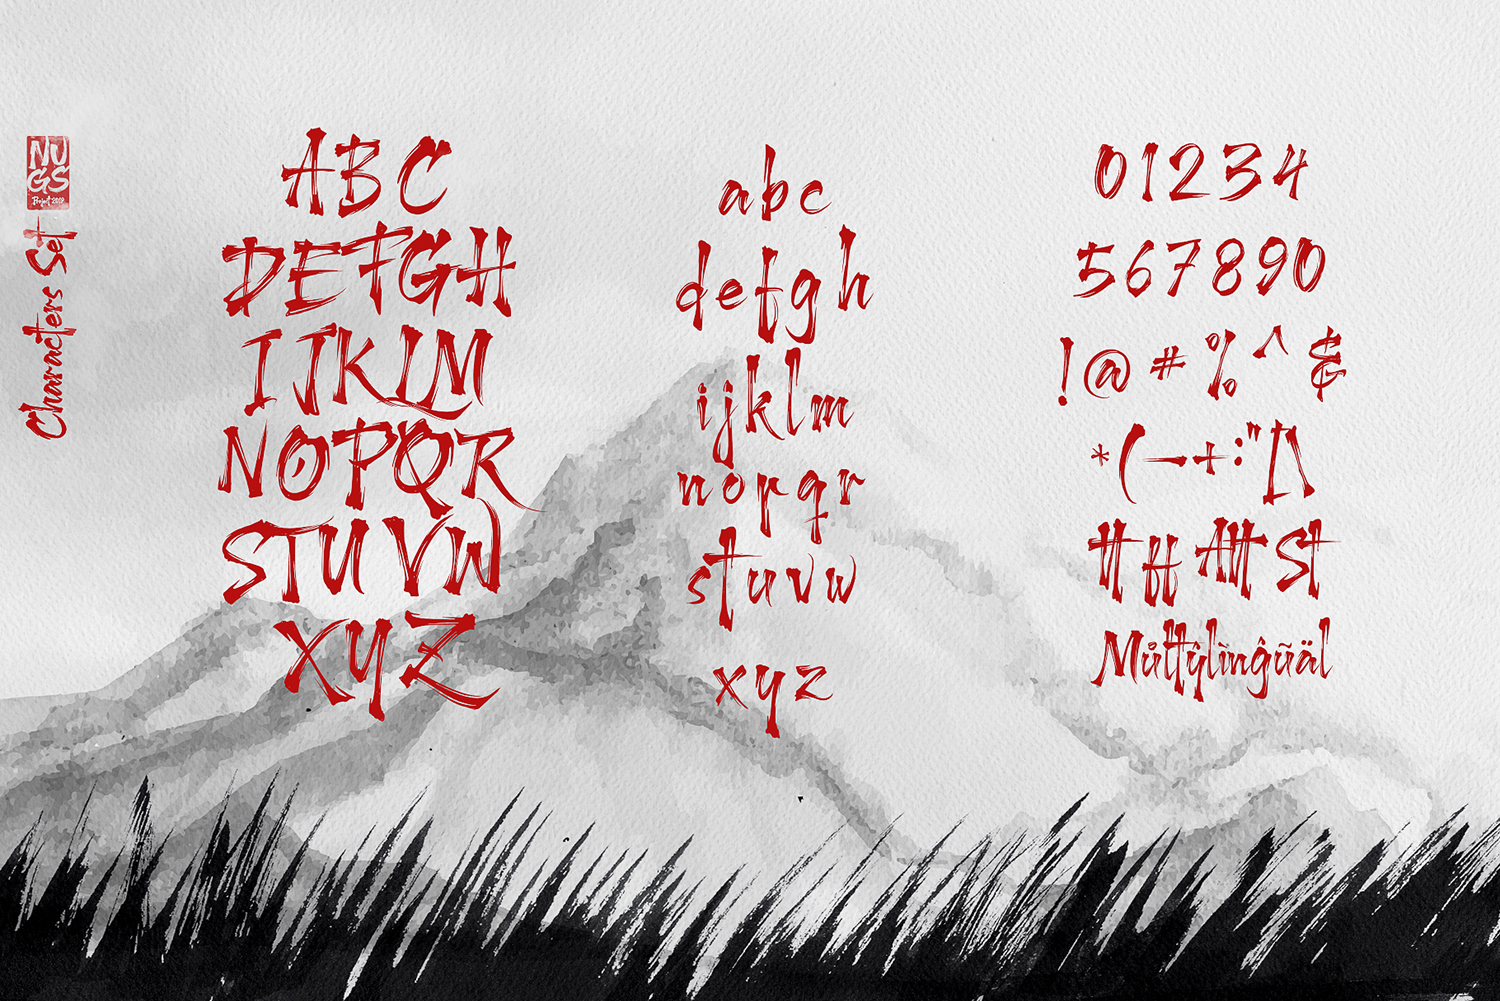 NU
GS
Project 2019
Characters Set
ABC
DEFGH
IJKLM
NOPQR
STUVW
XYZ
abc
defgh
ijklm
nopqr
stuvw
xyz
01234
567890
!@#%^&
*(—+:"[\
tt ff Att St
Můltŷlïngûãl